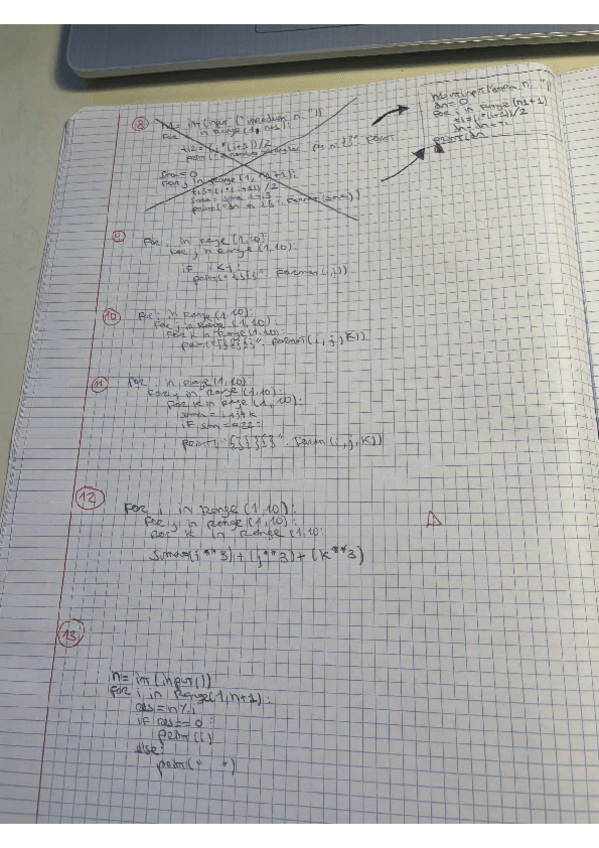 8 n1 = int(input("
for i in range(1, n1+1):
t12 = (i*(i+1))/2
print("
Soma = 0
for i in range(1, n1+1):
/2
print("
n1 = int(input(
Sn = 0
for i in range(n1+1)
(i+1))/2
print(Sn
9 for i in range(1,10)
for j in range(1,10):
if i<j
print("{}{}".format(i,j))
10 for i in range(1,10):
for j in range(1,10):
for k in range(1,10):
print("{}{}{}".format(i,j,k))
11 for i in range(1,10)
for j in range(1,10):
for k in range(1,10):
soma = i+j+k
if soma == 22:
print("{}{}{}".format(i,j,k))
12 for i in range(1,10):
for j in range(1,10):
for k in range(1,10:
Soma=(i**3)+(j**3)+(k**3)
13
n = int(input())
for i in range(1,n+1):
res = n%i
if res == 0:
print(i)
else:
print(